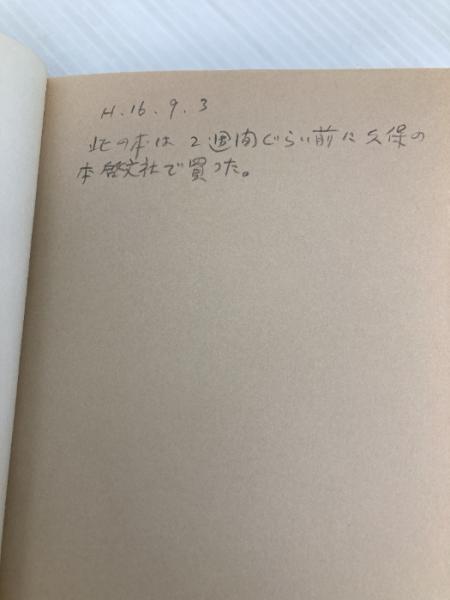 H.16.9.3
此の本は2週間ぐらい前に久保の
本啓文社で買った。